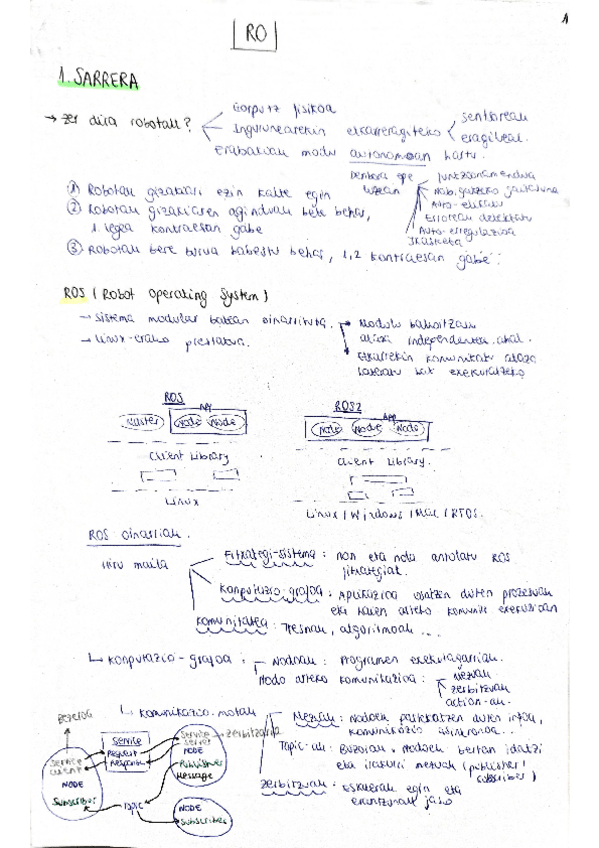 RO
1. SARRERA
→ Zer dira robotak?
Gorputz fisikoa
Ingurunearekin elkarreragiteko
sentsoreak
eragileak.
Erabakiak modu autonomoan hartu.
denbora epe luzean
funtzionamendua
Auto-elikatu
Erroreak detektatu
Auto-erregulazioa
Ikasketa
① Robotak gizakiari ezin kalte egin
② Robotak gizakiaren aginduak bete behar,
1. legea kontraesan gabe
③ Robotak bere burua babestu behar, 1,2 kontraesan gabe.
ROS (Robot Operating System)
→ Sistema modular batean oinarrituta.
→ Modulu bakoitzak
independentea
→ Linux-erako prestatua.
komunikatu
exekutatzeko
ROS
App
Master Node Node
Client Library
Linux
ROS2
App
Node Node Node
Client Library.
Linux | Windows | Mac | RTOS.
ROS oinarriak.
Hiru maila
Fitxategi-sistema: non eta nola antolatu ROS
fitxategiak.
Konputazio-grafoa: Aplikazioa osatzen duten prozesuak
eta haien arteko komunik.
Komunitatea: Tresnak, algoritmoak ...
↳ Konputazio-grafoa:
Nodoak: Programen exekutagarriak.
Nodo arteko komunikazioa:
Mezuak
Zerbitzuak
action-ak.
↳ Komunikazio motak
Mezuak: Nodoek partekatzen duten infoa,
komunikazio asinkronoa...
Topic-ak: Buzoiak, nodoek bertan idatzi
eta irakurri mezuak (publisher /
subscriber)
Zerbitzuak: Eskaerak egin eta
erantzunak jaso
BEZEROA
Service
Request
Response
Service Client
NODE
Subscriber
Service Server → zerbitzaria
NODE
Publisher
Message
Topic
NODE
Subscriber